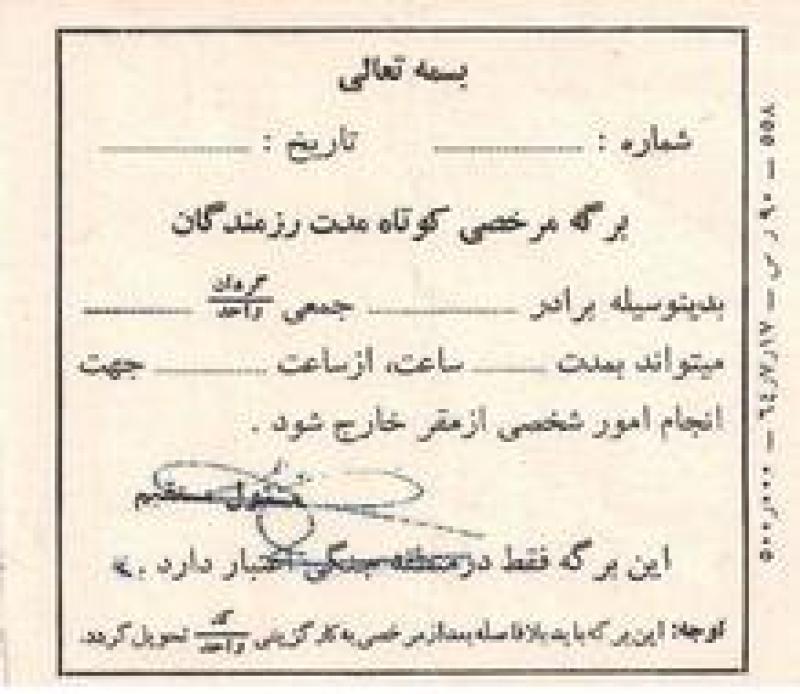 بسمه تعالی
شماره : ............ تاریخ : ............
برگه مرخصی کوتاه مدت رزمندگان
بدینوسیله برادر ............ جمعی گردان/واحد ............
میتواند بمدت ........ ساعت، ازساعت ............ جهت
انجام امور شخصی ازمقر خارج شود .
مسئول مستقیم
این برگه فقط درمنطقه جنگی اعتبار دارد .
توجه: این برگه باید بلافاصله بعد از مرخصی به کارگزینی واحد تحویل گردد.
۵۵۸ – ۹۰ ر ص – ۶۴٫۷٫۱۷ – ۵۰۰٫۰۰۰